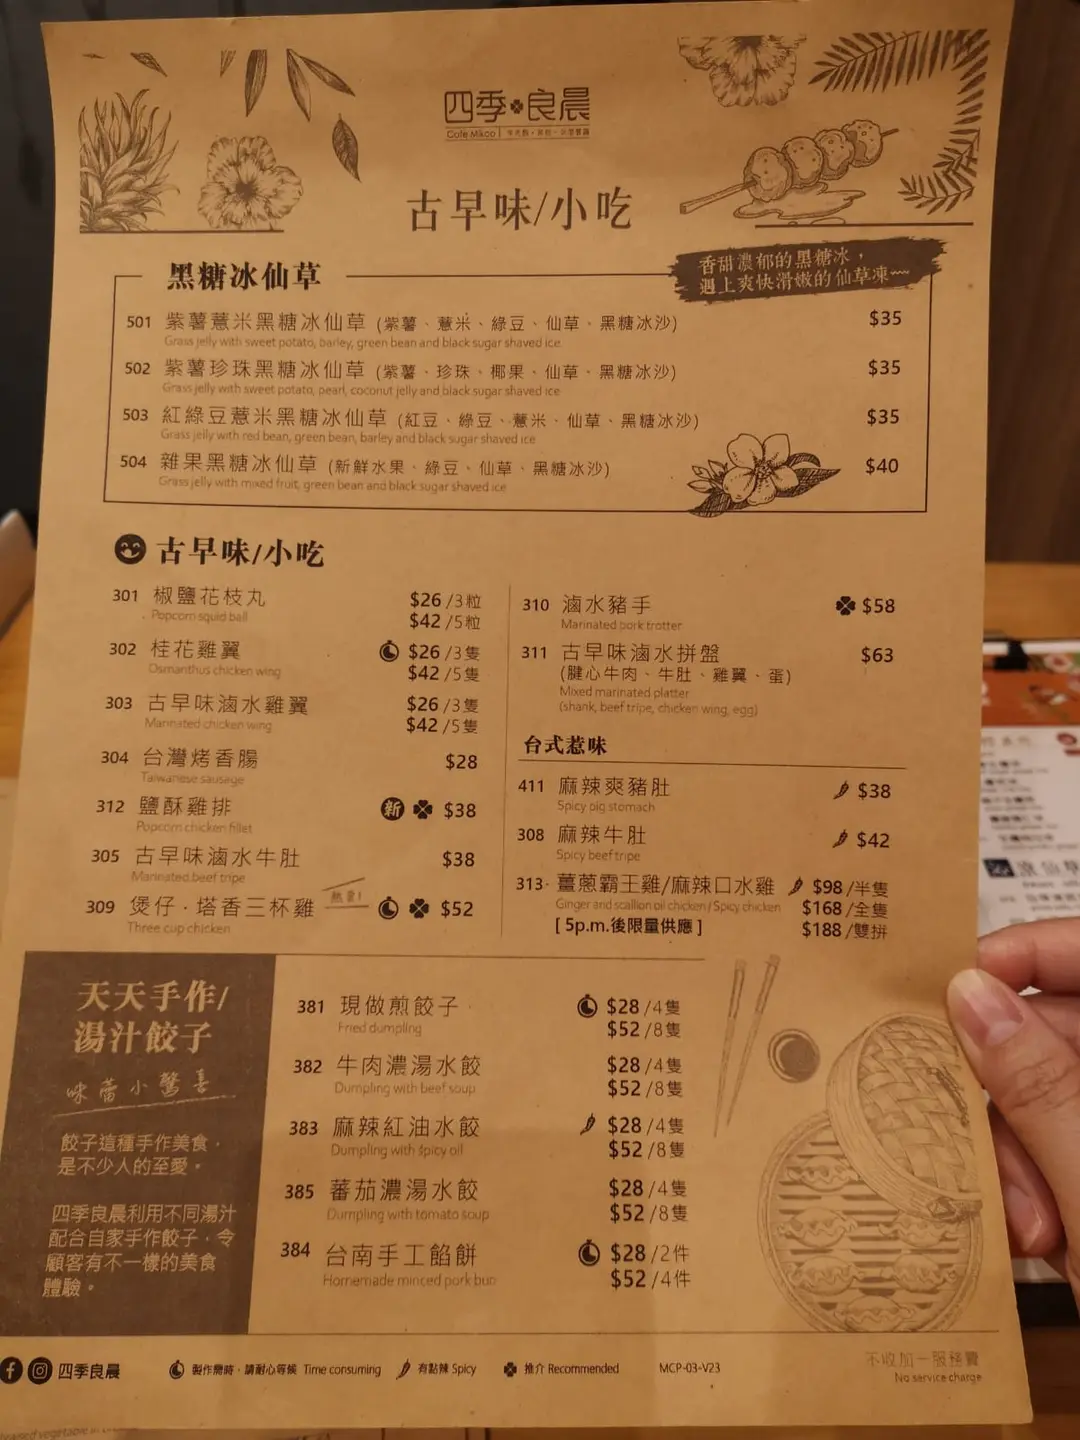 四季良晨
Café Mileo
古早味/小吃
黑糖冰仙草
香甜濃郁的黑糖冰，
遇上爽快滑嫩的仙草凍~~
501 紫薯薏米黑糖冰仙草 (紫薯、薏米、綠豆、仙草、黑糖冰沙) $35
Grass jelly with sweet potato, barley, green bean and black sugar shaved ice
502 紫薯珍珠黑糖冰仙草 (紫薯、珍珠、椰果、仙草、黑糖冰沙) $35
Grass jelly with sweet potato, pearl, coconut jelly and black sugar shaved ice
503 紅綠豆薏米黑糖冰仙草 (紅豆、綠豆、薏米、仙草、黑糖冰沙) $35
Grass jelly with red bean, green bean, barley and black sugar shaved ice
504 雜果黑糖冰仙草 (新鮮水果、綠豆、仙草、黑糖冰沙) $40
Grass jelly with mixed fruit, green bean and black sugar shaved ice
古早味/小吃
301 椒鹽花枝丸 $26 /3粒
Popcorn squid ball $42 /5粒
302 桂花雞翼 $26 /3隻
Osmanthus chicken wing $42 /5隻
303 古早味滷水雞翼 $26 /3隻
Marinated chicken wing $42 /5隻
304 台灣烤香腸 $28
Taiwanese sausage
312 鹽酥雞排 新 $38
Popcorn chicken fillet
305 古早味滷水牛肚 $38
Marinated beef tripe
309 煲仔·塔香三杯雞 熱賣! $52
Three cup chicken
310 滷水豬手 $58
Marinated pork trotter
311 古早味滷水拼盤 $63
(腱心牛肉、牛肚、雞翼、蛋)
Mixed marinated platter
(shank, beef tripe, chicken wing, egg)
台式惹味
411 麻辣爽豬肚 $38
Spicy pig stomach
308 麻辣牛肚 $42
Spicy beef tripe
313 薑蔥霸王雞/麻辣口水雞 $98 /半隻
Ginger and scallion oil chicken / Spicy chicken $168 /全隻
[ 5p.m.後限量供應 ] $188 /雙拼
天天手作/
湯汁餃子
味蕾小驚喜
餃子這種手作美食，
是不少人的至愛。
四季良晨利用不同湯汁
配合自家手作餃子，令
顧客有不一樣的美食
體驗。
381 現做煎餃子 $28 /4隻
Fried dumpling $52 /8隻
382 牛肉濃湯水餃 $28 /4隻
Dumpling with beef soup $52 /8隻
383 麻辣紅油水餃 $28 /4隻
Dumpling with spicy oil $52 /8隻
385 蕃茄濃湯水餃 $28 /4隻
Dumpling with tomato soup $52 /8隻
384 台南手工餡餅 $28 /2件
Homemade minced pork bun $52 /4件
四季良晨 製作需時，請耐心等候 Time consuming 有點辣 Spicy 推介 Recommended MCP-03-V23
不收加一服務費
No service charge